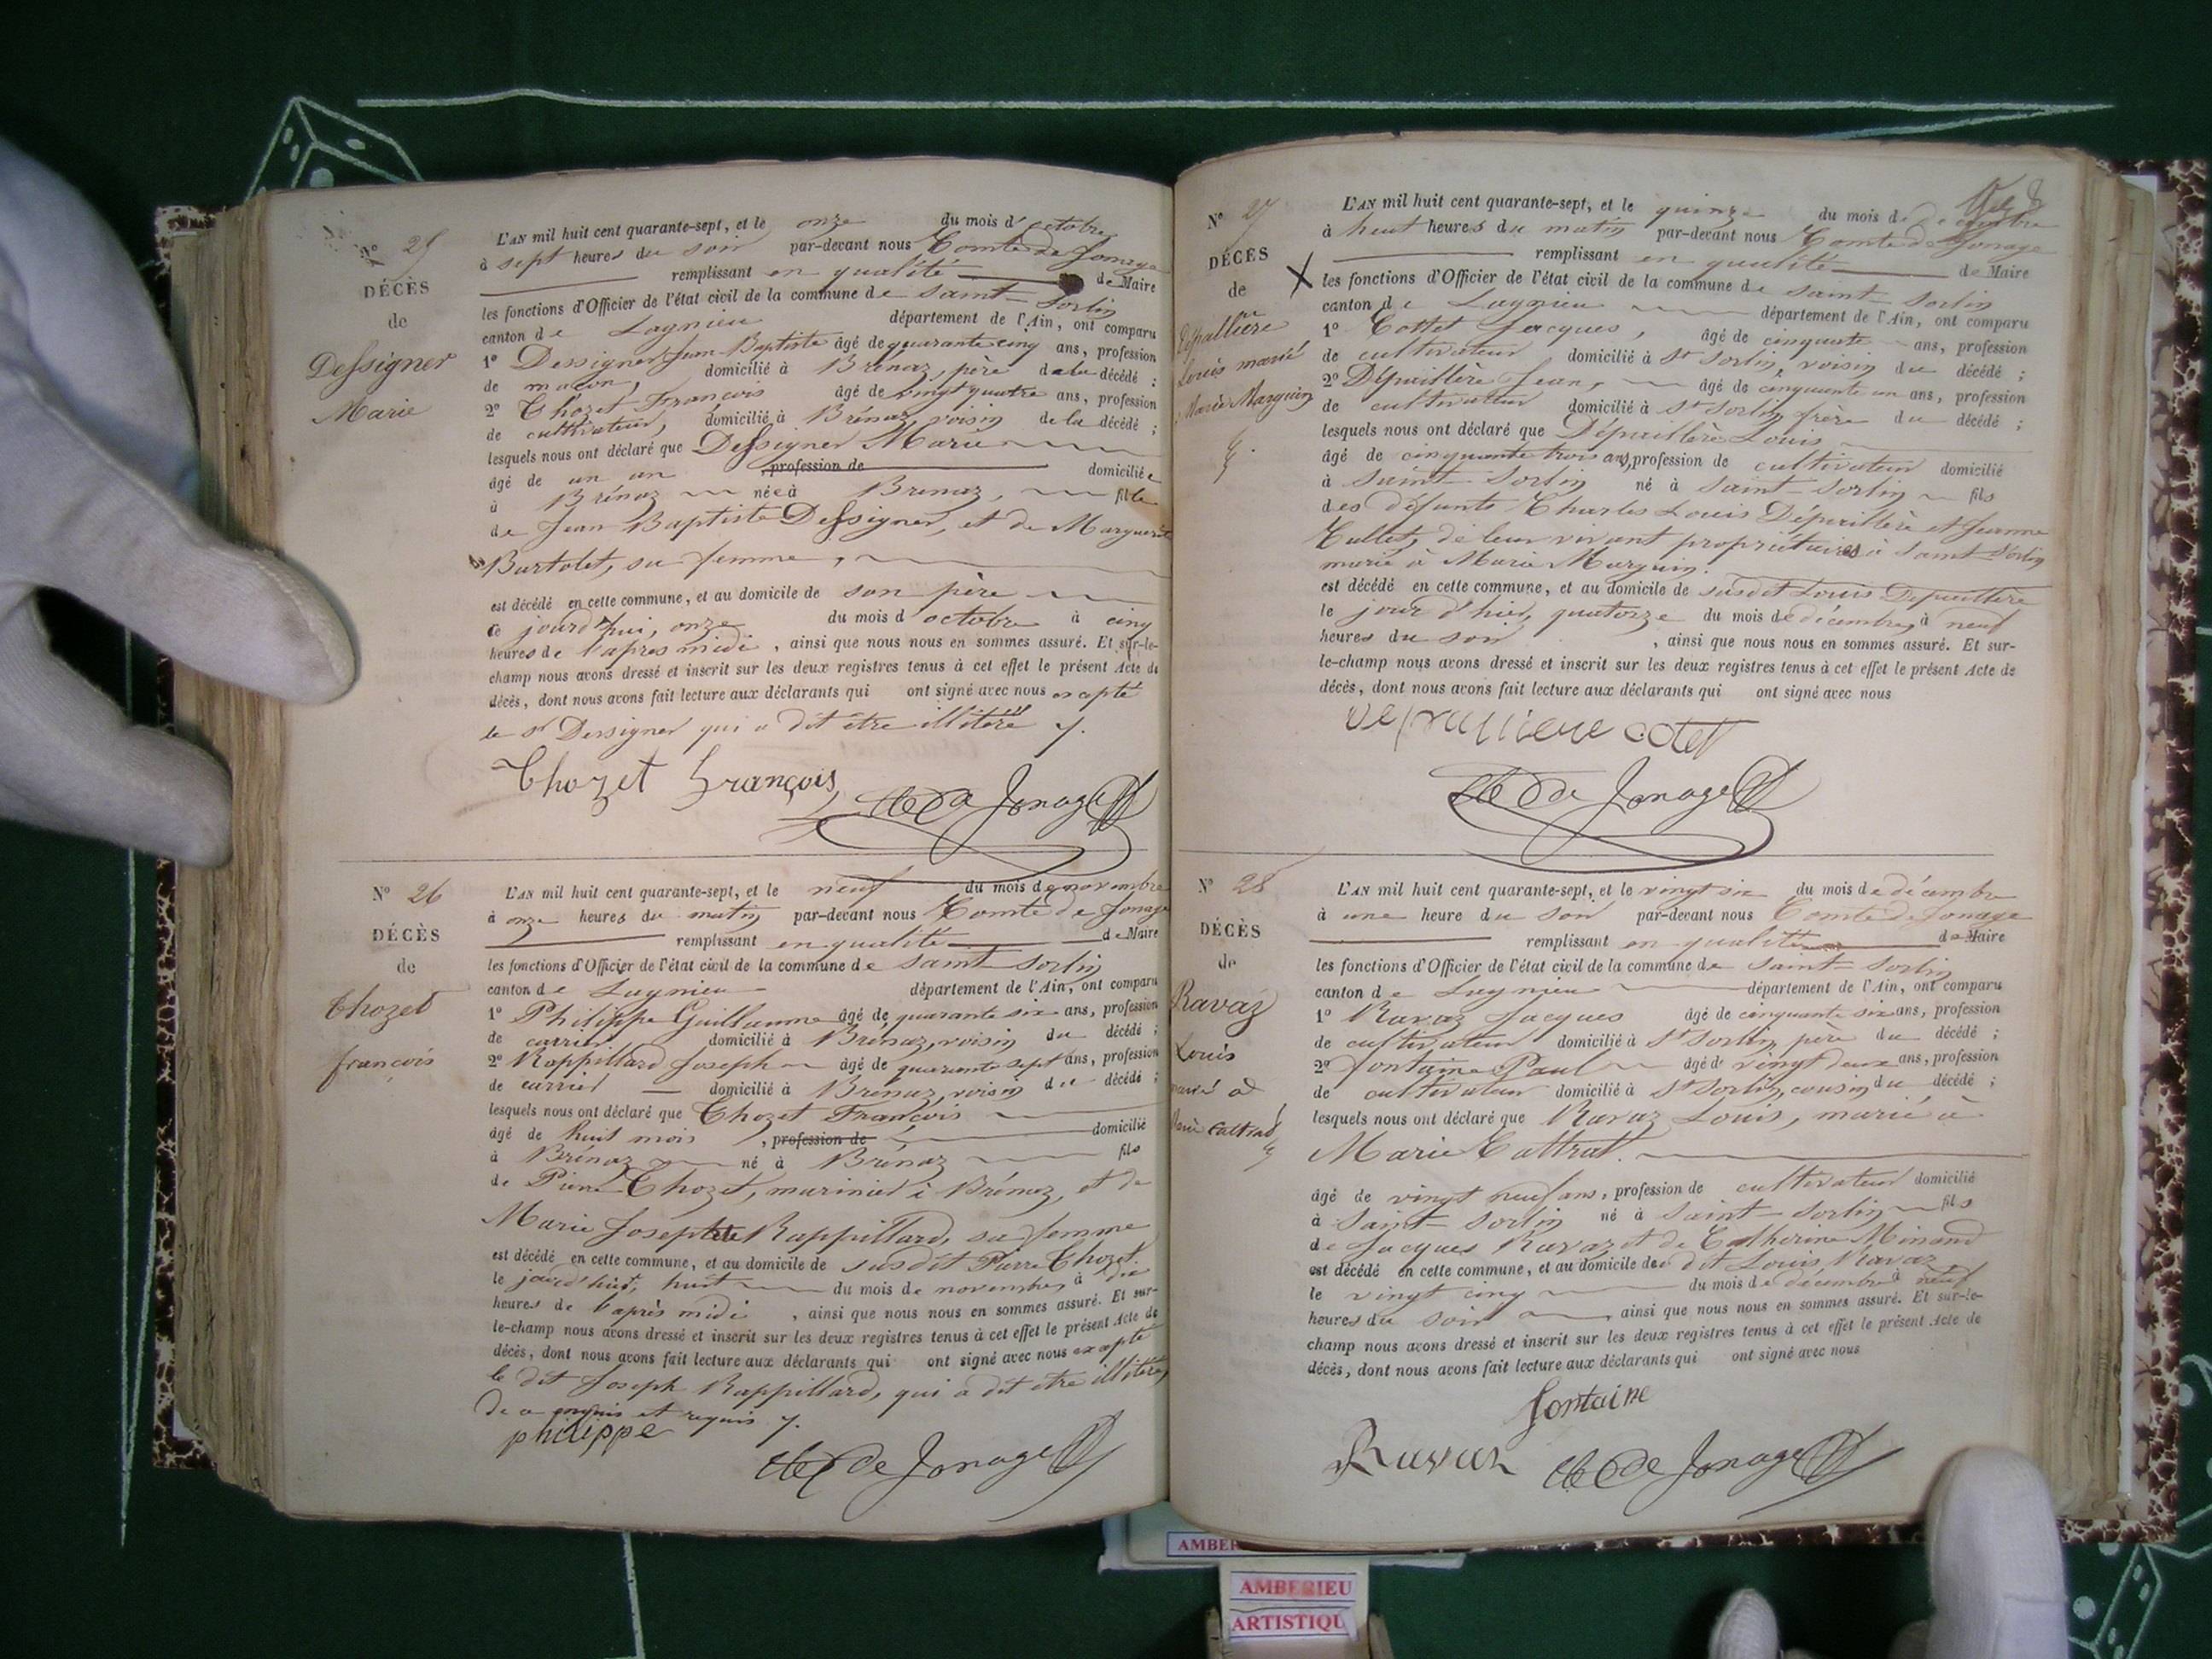 N° 25
DÉCÈS
de
Dessigner
Marie
L'AN mil huit cent quarante-sept, et le onze du mois d'octobre
à sept heures du soir par-devant nous Comte de Jonage
remplissant en qualité de Maire
les fonctions d'Officier de l'état civil de la commune de Saint-Sorlin
canton de Lagnieu département de l'Ain, ont comparu
1° Dessigner Jean Baptiste âgé de quarante cinq ans, profession
de maçon, domicilié à Brénaz, père de la décédé ;
2° Chozet François âgé de vingt quatre ans, profession
de cultivateur, domicilié à Brénaz, voisin de la décédé ;
lesquels nous ont déclaré que Dessigner Marie
âgé de un an profession de domiciliée
à Brénaz née à Brenaz, fille
de Jean Baptiste Dessigner, et de Marguerite
Bartolet, sa femme,
est décédé en cette commune, et au domicile de son père
ce jourd'hui, onze du mois d'octobre à cinq
heures de l'après midi, ainsi que nous nous en sommes assuré. Et sur-le-
champ nous avons dressé et inscrit sur les deux registres tenus à cet effet le présent Acte de
décès, dont nous avons fait lecture aux déclarants qui ont signé avec nous excepté
le sr Dessigner qui a dit être illitéré
Chozet François
Cte de Jonage
N° 26
DÉCÈS
de
Chozet
françois
L'AN mil huit cent quarante-sept, et le neuf du mois de novembre
à onze heures du matin par-devant nous Comte de Jonage
remplissant en qualité de Maire
les fonctions d'Officier de l'état civil de la commune de Saint-Sorlin
canton de Lagnieu département de l'Ain, ont comparu
1° Philippe Guillaume âgé de quarante six ans, profession
de carrier domicilié à Brénaz, voisin du décédé ;
2° Rappillard Joseph âgé de quarante sept ans, profession
de carrier domicilié à Brenaz, voisin du décédé ;
lesquels nous ont déclaré que Chozet François
âgé de huit mois, profession de domicilié
à Brénaz né à Brénaz fils
de Pierre Chozet, marinier à Brénaz, et de
Marie Josephte Rappillard, sa femme
est décédé en cette commune, et au domicile de susdit Pierre Chozet
le jour d'hier, huit du mois de novembre, à
heures de l'après midi, ainsi que nous nous en sommes assuré. Et sur-
le-champ nous avons dressé et inscrit sur les deux registres tenus à cet effet le présent Acte de
décès, dont nous avons fait lecture aux déclarants qui ont signé avec nous excepté
le dit Joseph Rappillard, qui a dit être illitéré,
de ce enquis et requis
philippe
Cte de Jonage
N° 27
DÉCÈS
de
Dépallière
Louis marié
Marie Marguin
L'AN mil huit cent quarante-sept, et le quinze du mois de décembre
à heut heures du matin par-devant nous Comte de Jonage
remplissant en qualité de Maire
X les fonctions d'Officier de l'état civil de la commune de Saint-Sorlin
canton de Lagnieu département de l'Ain, ont comparu
1° Cottet Jacques, âgé de cinquante ans, profession
de cultivateur domicilié à St Sorlin, voisin du décédé ;
2° Dépaillère Jean, âgé de cinquante un ans, profession
de cultivateur domicilié à St Sorlin, frère du décédé ;
lesquels nous ont déclaré que Dépaillère Louis
âgé de cinquante trois ans, profession de cultivateur domicilié
à Saint-Sorlin né à Saint-Sorlin fils
des défunts Charles Louis Dépaillère et Jeanne
de leur vivant propriétaires à Saint-Sorlin
marié à Marie Marguin.
est décédé en cette commune, et au domicile de susdit Louis Depaillère
le jour d'hier, quatorze du mois de décembre, à neuf
heures du soir, ainsi que nous nous en sommes assuré. Et sur-
le-champ nous avons dressé et inscrit sur les deux registres tenus à cet effet le présent Acte de
décès, dont nous avons fait lecture aux déclarants qui ont signé avec nous
cotet
Cte de Jonage
N° 28
DÉCÈS
de
Ravaz
Louis
marié à
Marie Cattrat
L'AN mil huit cent quarante-sept, et le vingt six du mois de décembre
à une heure du soir par-devant nous Comte de Jonage
remplissant en qualité de Maire
les fonctions d'Officier de l'état civil de la commune de Saint-Sorlin
canton de Lagnieu département de l'Ain, ont comparu
1° Ravaz Jacques âgé de cinquante six ans, profession
de cultivateur domicilié à St Sorlin, père du décédé ;
2° fontaine Paul âgé de vingt deux ans, profession
de cultivateur domicilié à St Sorlin, cousin du décédé ;
lesquels nous ont déclaré que Ravaz Louis, marié à
Marie Cattrat.
âgé de vingt neuf ans, profession de cultivateur domicilié
à Saint-Sorlin né à Saint-Sorlin fils
de Jacques Ravaz et de Catherine Minand
est décédé en cette commune, et au domicile du dit Louis Ravaz
le vingt cinq du mois de décembre à neuf
heures du soir ainsi que nous nous en sommes assuré. Et sur-le-
champ nous avons dressé et inscrit sur les deux registres tenus à cet effet le présent Acte de
décès, dont nous avons fait lecture aux déclarants qui ont signé avec nous
fontaine
Ravaz Cte de Jonage
AMBER
AMBERIEU
ARTISTIQU